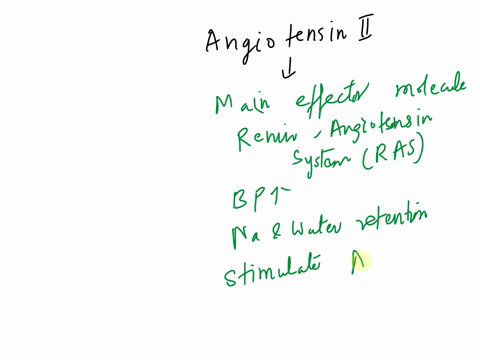 Angiotensin II
↓
Main effector molecule
Renin - Angiotensin
System (RAS)
BP↑
Na & Water retention
Stimulate A